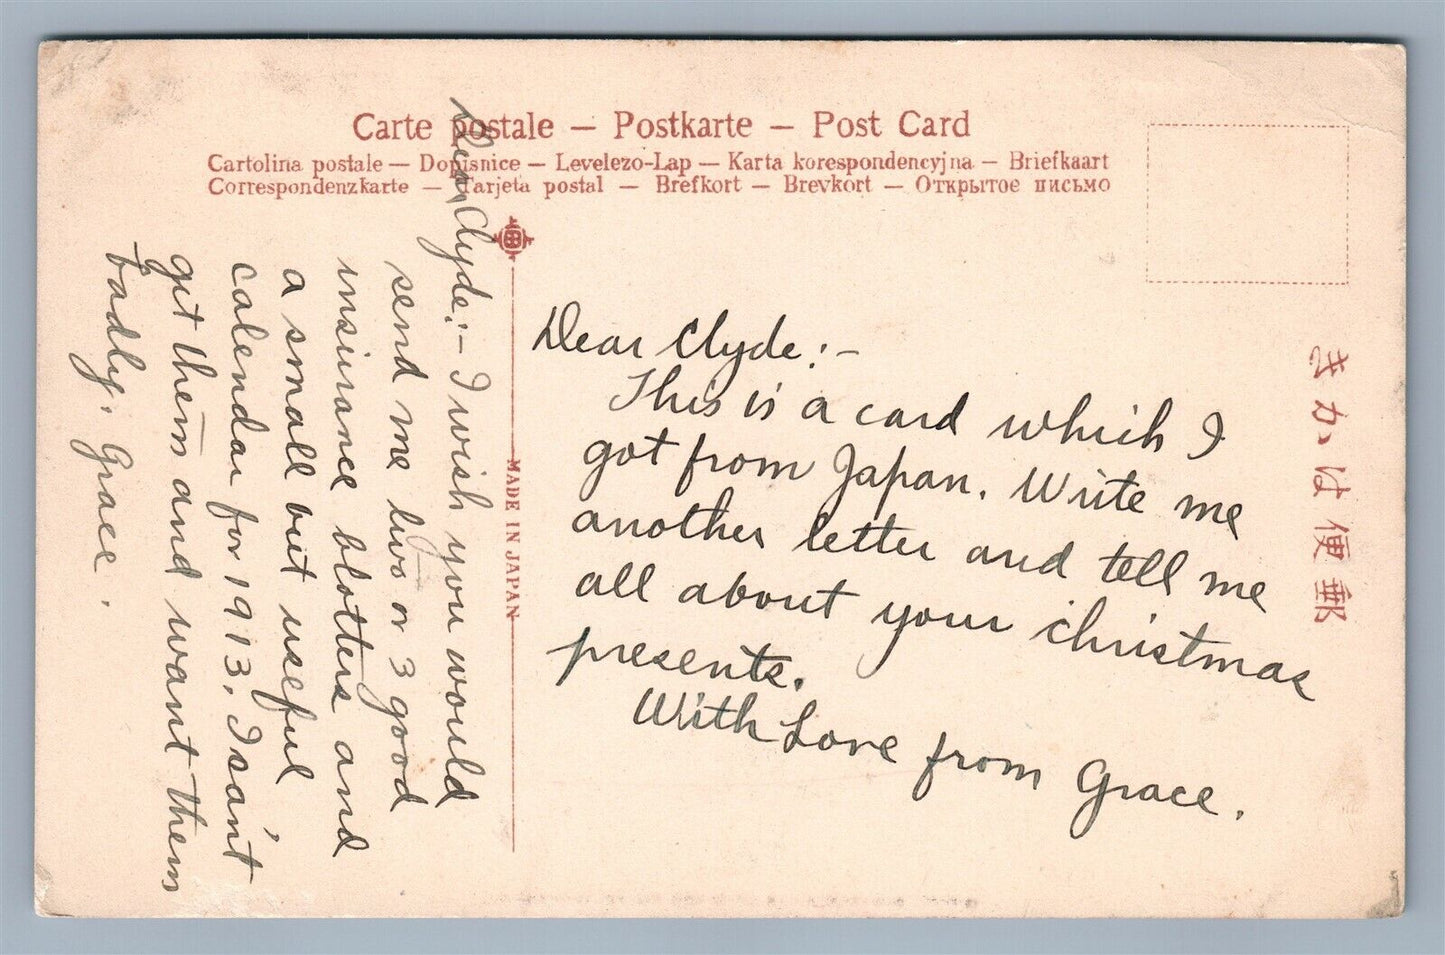 Carte postale — Postkarte — Post Card
Cartolina postale — Dopisnice — Levelezo-Lap — Karta korespondencyjna — Briefkaart
Correspondenzkarte — Tarjeta postal — Brefkort — Brevkort — Открытое письмо
きかは便郵
MADE IN JAPAN
Dear Clyde:- I wish you would
send me two or 3 good
insurance blotters and
a small but useful
calendar for 1913. I san't
git them and want them
badly. Grace.
Dear Clyde:-
This is a card which I
got from Japan. Write me
another letter and tell me
all about your christmas
presents.
With Love from Grace.